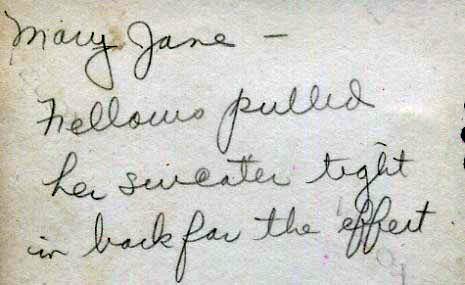 Mary Jane –
Fellows pulled
her sweater tight
in back for the effect